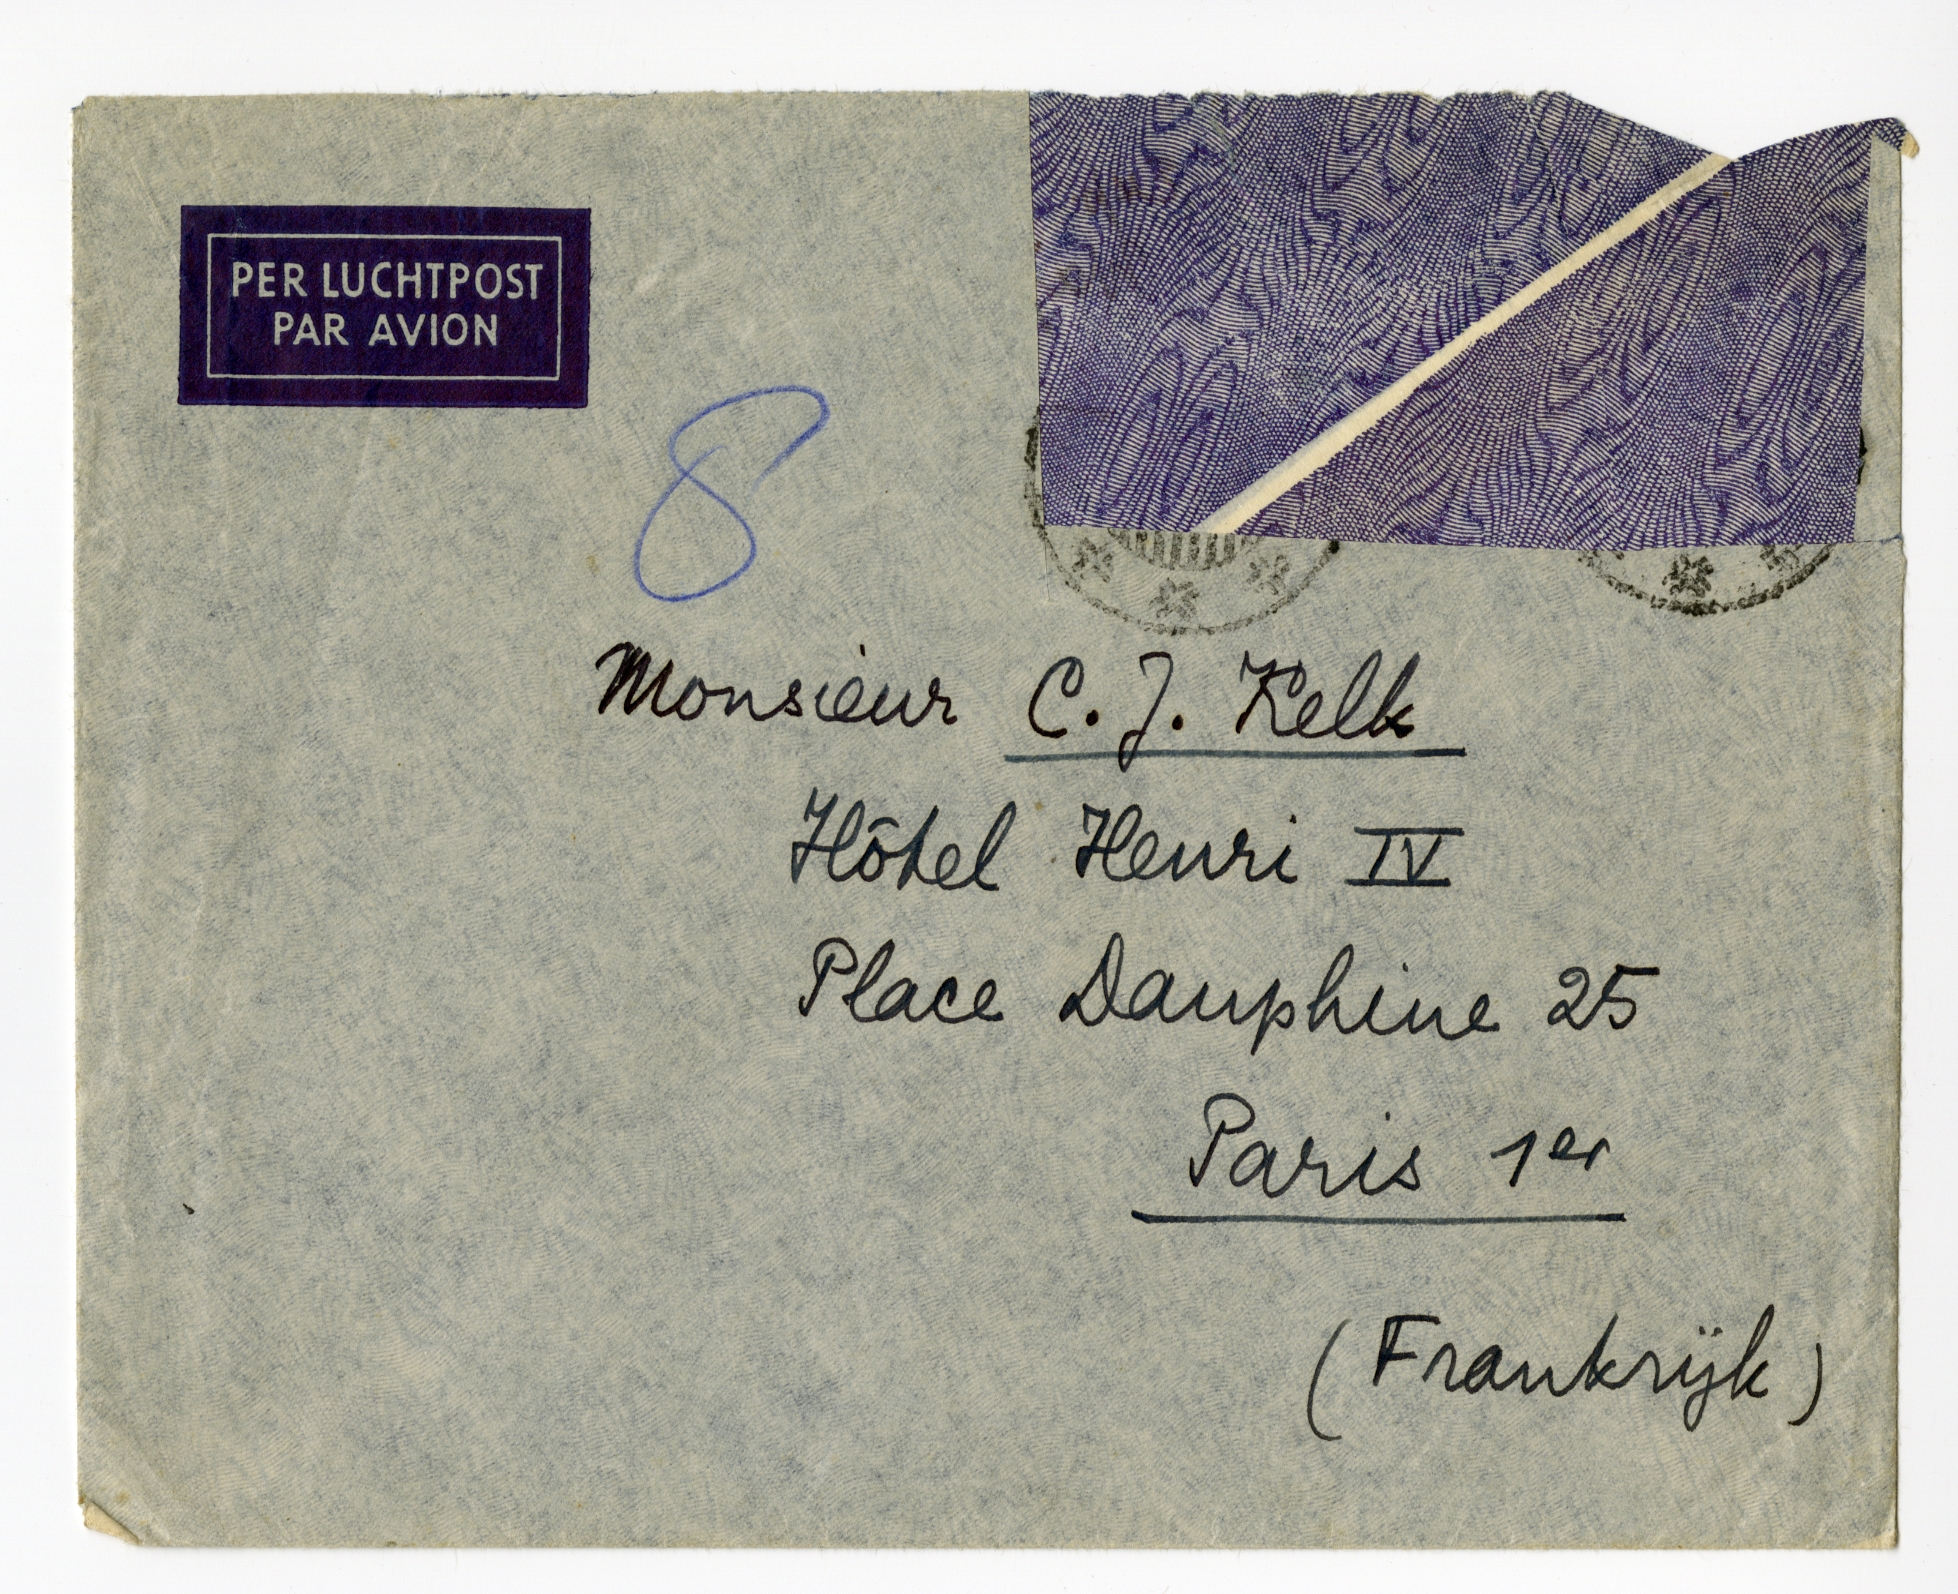 PER LUCHTPOST
PAR AVION
8
Monsieur C. J. Kelk
Hôtel Henri IV
Place Dauphine 25
Paris 1er
(Frankrijk)